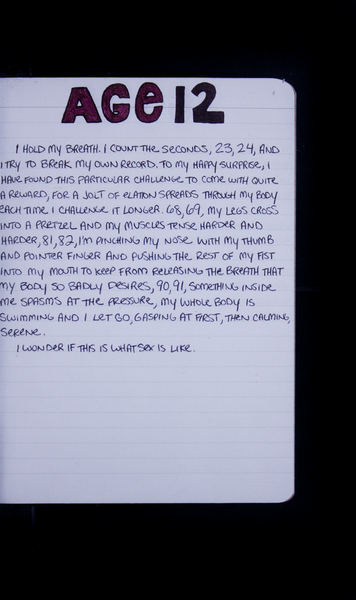 AGE 12
I HOLD MY BREATH. I COUNT THE SECONDS, 23, 24, AND
I TRY TO BREAK MY OWN RECORD. TO MY HAPPY SURPRISE, I
HAVE FOUND THIS PARTICULAR CHALLENGE TO COME WITH QUITE
A REWARD, FOR A JOLT OF ELATION SPREADS THROUGH MY BODY
EACH TIME I CHALLENGE IT LONGER. 68, 69, MY LEGS CROSS
INTO A PRETZEL AND MY MUSCLES TENSE HARDER AND
HARDER, 81, 82, I'M PINCHING MY NOSE WITH MY THUMB
AND POINTER FINGER AND PUSHING THE REST OF MY FIST
INTO MY MOUTH TO KEEP FROM RELEASING THE BREATH THAT
MY BODY SO BADLY DESIRES, 90, 91, SOMETHING INSIDE
ME SPASMS AT THE PRESSURE, MY WHOLE BODY IS
SWIMMING AND I LET GO, GASPING AT FIRST, THEN CALMING,
SERENE.
I WONDER IF THIS IS WHAT SEX IS LIKE.